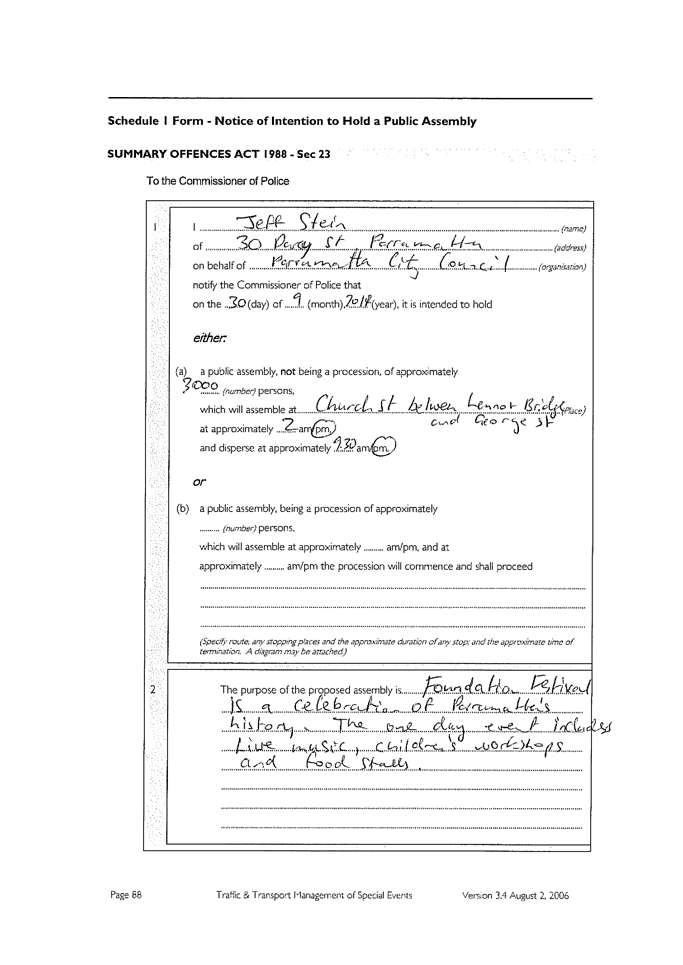 Schedule 1 Form - Notice of Intention to Hold a Public Assembly
SUMMARY OFFENCES ACT 1988 - Sec 23
To the Commissioner of Police
1
I Jeff Stein (name)
of 30 Darcy St Parramatta (address)
on behalf of Parramatta City Council (organisation)
notify the Commissioner of Police that
on the 30 (day) of 9 (month), 2014 (year), it is intended to hold
either:
(a) a public assembly, not being a procession, of approximately
3000 (number) persons,
which will assemble at Church St between Lennox Bridge (Place)
and George St
at approximately 2 am/pm,
and disperse at approximately 9.30 am/pm.
or
(b) a public assembly, being a procession of approximately
.......... (number) persons,
which will assemble at approximately ......... am/pm, and at
approximately ......... am/pm the procession will commence and shall proceed
(Specify route, any stopping places and the approximate duration of any stop; and the approximate time of
termination. A diagram may be attached.)
2
The purpose of the proposed assembly is Foundation Festival
is a celebration of Parramatta's
history. The one day event includes
Live music, children's workshops
and food stalls.
Page 88 Traffic & Transport Management of Special Events Version 3.4 August 2, 2006